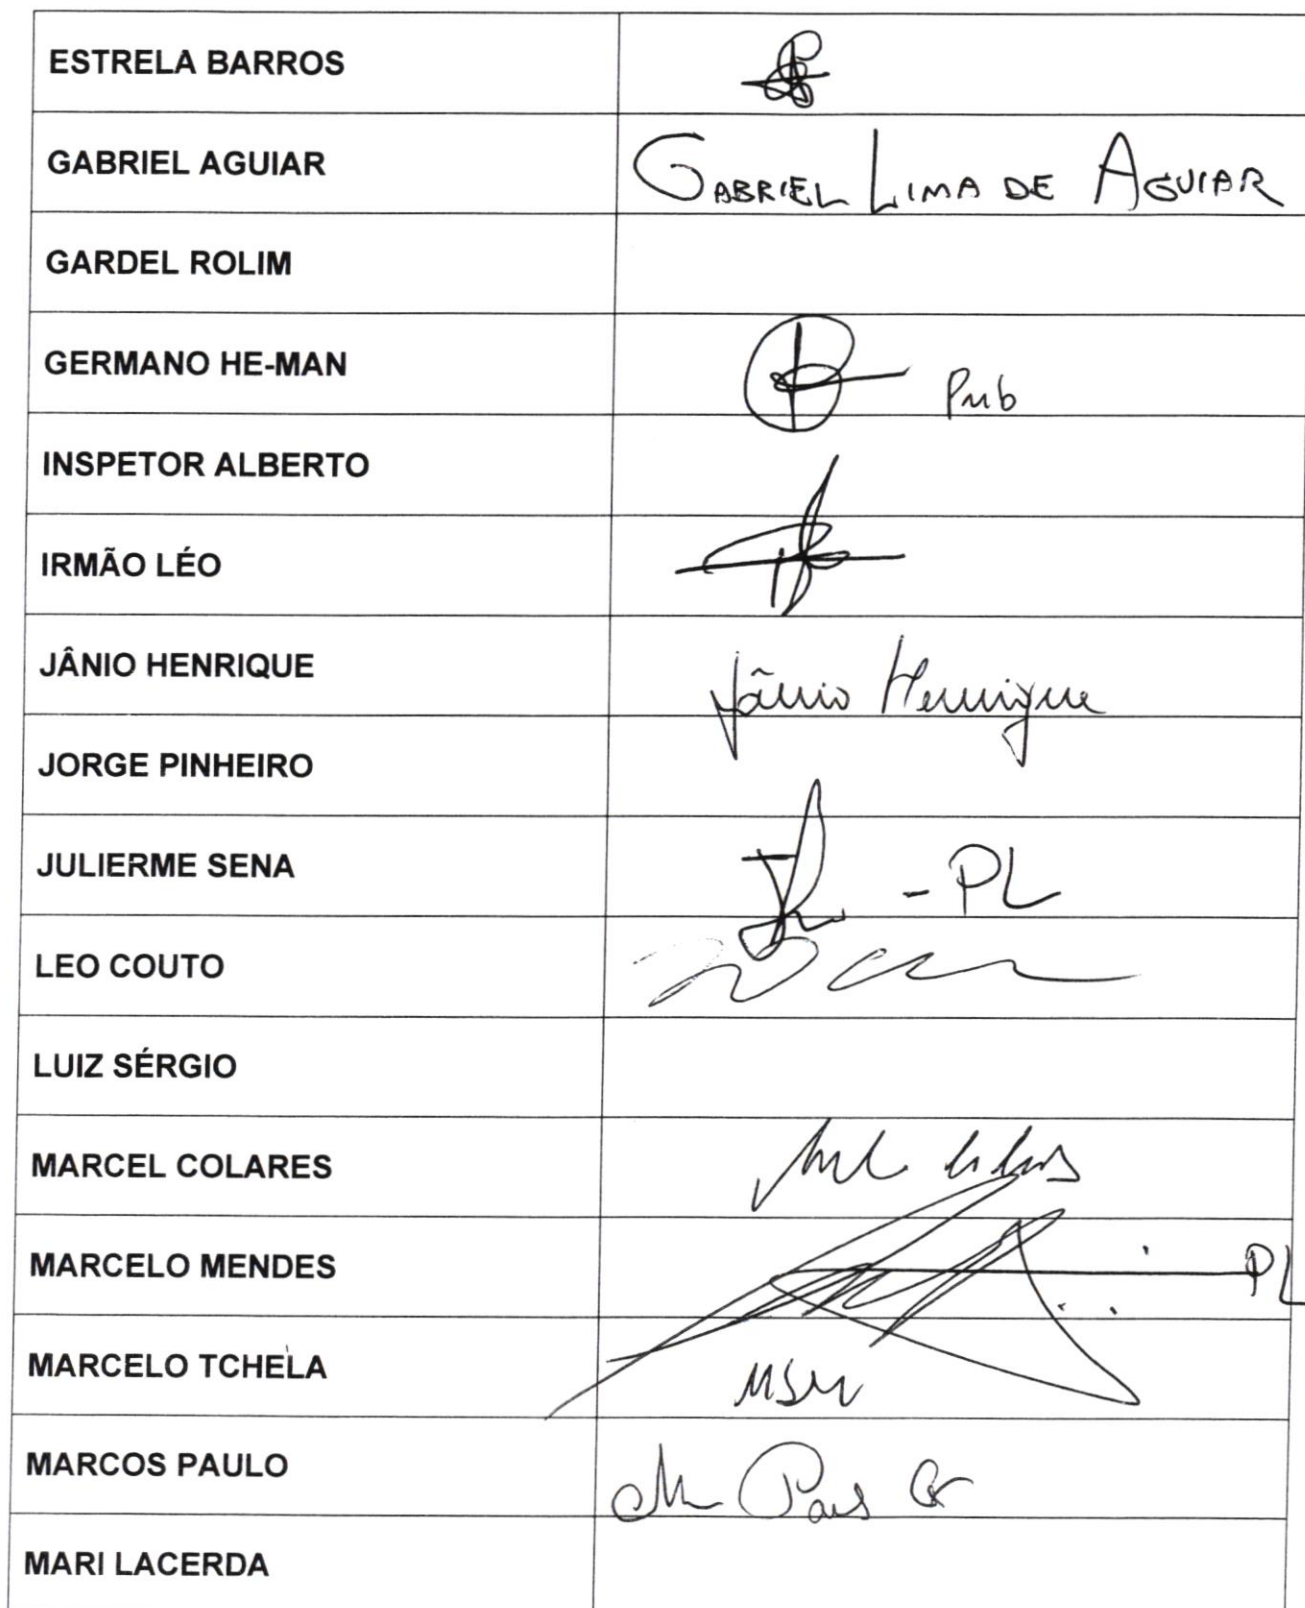 ESTRELA BARROS
GABRIEL AGUIAR GABRIEL LIMA DE AGUIAR
GARDEL ROLIM
GERMANO HE-MAN
INSPETOR ALBERTO
IRMÃO LÉO
JÂNIO HENRIQUE Jânio Henrique
JORGE PINHEIRO
JULIERME SENA - PL
LEO COUTO
LUIZ SÉRGIO
MARCEL COLARES
MARCELO MENDES PL
MARCELO TCHELA
MARCOS PAULO
MARI LACERDA